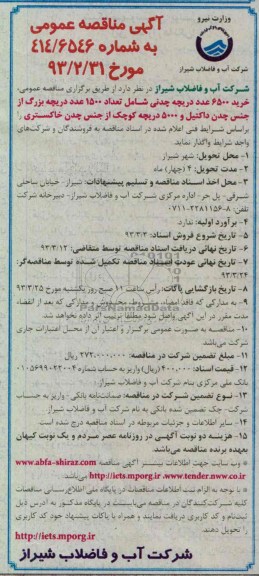 وزارت نیرو
شرکت آب و فاضلاب شیراز
آگهی مناقصه عمومی
به شماره ۴۱۴/۶۵۴۶
مورخ ۹۳/۲/۳۱
شرکت آب و فاضلاب شیراز در نظر دارد از طریق برگزاری مناقصه عمومی،
خرید ۶۵۰۰ عدد دریچه چدنی شامل تعداد ۱۵۰۰ عدد دریچه بزرگ از
جنس چدن داکتیل و ۵۰۰۰ دریچه کوچک از جنس چدن خاکستری را
براساس شرایط فنی اعلام شده در اسناد مناقصه به فروشندگان و شرکت‌های
واجد شرایط واگذار نماید.
۱- محل تحویل: شهر شیراز
۲- مدت تحویل: ۴ (چهار) ماه
۳- محل اخذ اسناد مناقصه و تسلیم پیشنهادات: شیراز- خیابان ساحلی
شرقی- پل حر- اداره مرکزی شرکت آب و فاضلاب شیراز- دبیرخانه شرکت
تلفن: ۸-۲۲۸۱۱۵۶-۰۷۱۱
۴- برآورد اولیه: ندارد.
۵- تاریخ شروع فروش اسناد: ۹۳/۳/۳
۶- تاریخ نهائی دریافت اسناد مناقصه توسط متقاضی: ۹۳/۳/۱۲
۷- تاریخ نهائی عودت اسناد مناقصه تکمیل شده توسط مناقصه‌گر:
۹۳/۳/۲۴
۸- تاریخ بازگشایی پاکات: راس ساعت ۱۱ صبح روز یکشنبه مورخ ۹۳/۳/۲۵
۹- به مدارکی که فاقد امضاء، مشروط، مخدوش و مدارکی که بعد از انقضاء
مدت مقرر در این آگهی واصل شود مطلقا ترتیب اثر داده نخواهد شد.
۱۰- مناقصه به صورت عمومی برگزار و اعتبار آن از محل اعتبارات جاری
شرکت می‌باشد.
۱۱- مبلغ تضمین شرکت در مناقصه: ۲۷۲/۰۰۰/۰۰۰ ریال
۱۲- قیمت اسناد: ۴۰۰/۰۰۰ (ریال) واریز به حساب شماره ۰۱۰۵۶۹۹۰۲۲۰۰۴
بانک ملی مرکزی بنام شرکت آب و فاضلاب شیراز.
۱۳- نوع تضمین شرکت در مناقصه: ضمانت‌نامه بانکی - واریز به حساب
شرکت- چک تضمین شده بانکی به نام شرکت آب و فاضلاب شیراز
۱۴- سایر اطلاعات و جزئیات مربوطه در اسناد مناقصه درج شده است.
۱۵- هزینه دو نوبت آگهی در روزنامه عصر مردم و یک نوبت کیهان
بعهده برنده مناقصه می‌باشد.
* وب سایت جهت اطلاعات بیشتر آگهی مناقصه www.abfa-shiraz.com
http://iets.mporg.ir .www.tender.nww.co.ir می‌باشد.
* با توجه به الزام ثبت اطلاعات مناقصات در پایگاه ملی اطلاع‌رسانی مناقصات
کلیه شرکت‌کنندگان در مناقصه می‌بایست در پایگاه مذکور به آدرس ذیل
ثبت‌نام و کد کاربری دریافت نمایند و همراه با پاکات پیشنهاد خود کد کاربری
را تحویل دهند.
http://iets.mporg.ir
شرکت آب و فاضلاب شیراز
ParsNamadData